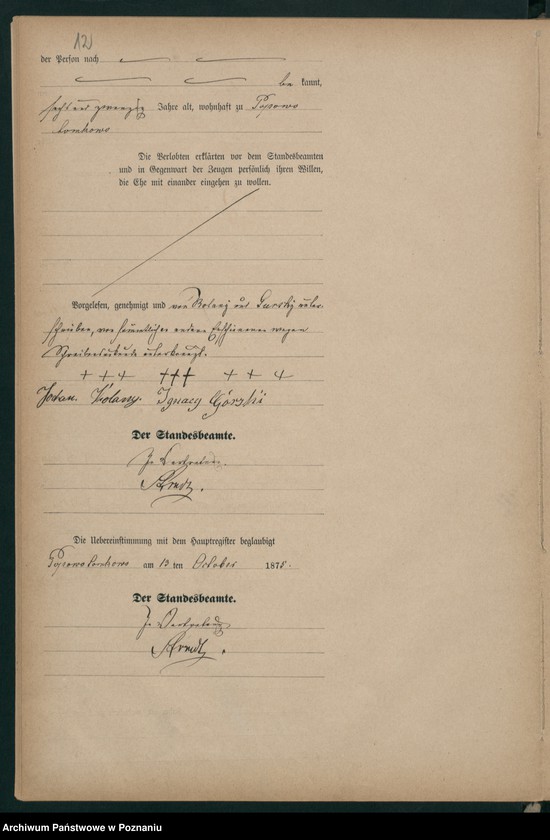 12
der Person nach
be kannt,
sechs und zwanzig Jahre alt, wohnhaft zu Popowo
tomkowo
Die Verlobten erklärten vor dem Standesbeamten
und in Gegenwart der Zeugen persönlich ihren Willen,
die Ehe mit einander eingehen zu wollen.
Vorgelesen, genehmigt und von Kolany und Gurski unter-
schrieben, von sämmtlichen andern Erschienenen wegen
Schreibens unterkreuzt.
+ + + +++ + + +
Kolany. Ignacy Górski
Der Standesbeamte.
In Vertretung.
Arndt.
Die Uebereinstimmung mit dem Hauptregister beglaubigt
Popowo tomkowo am 13 ten October 1875.
Der Standesbeamte.
In Vertretung
Arndt.
Archiwum Państwowe w Poznaniu